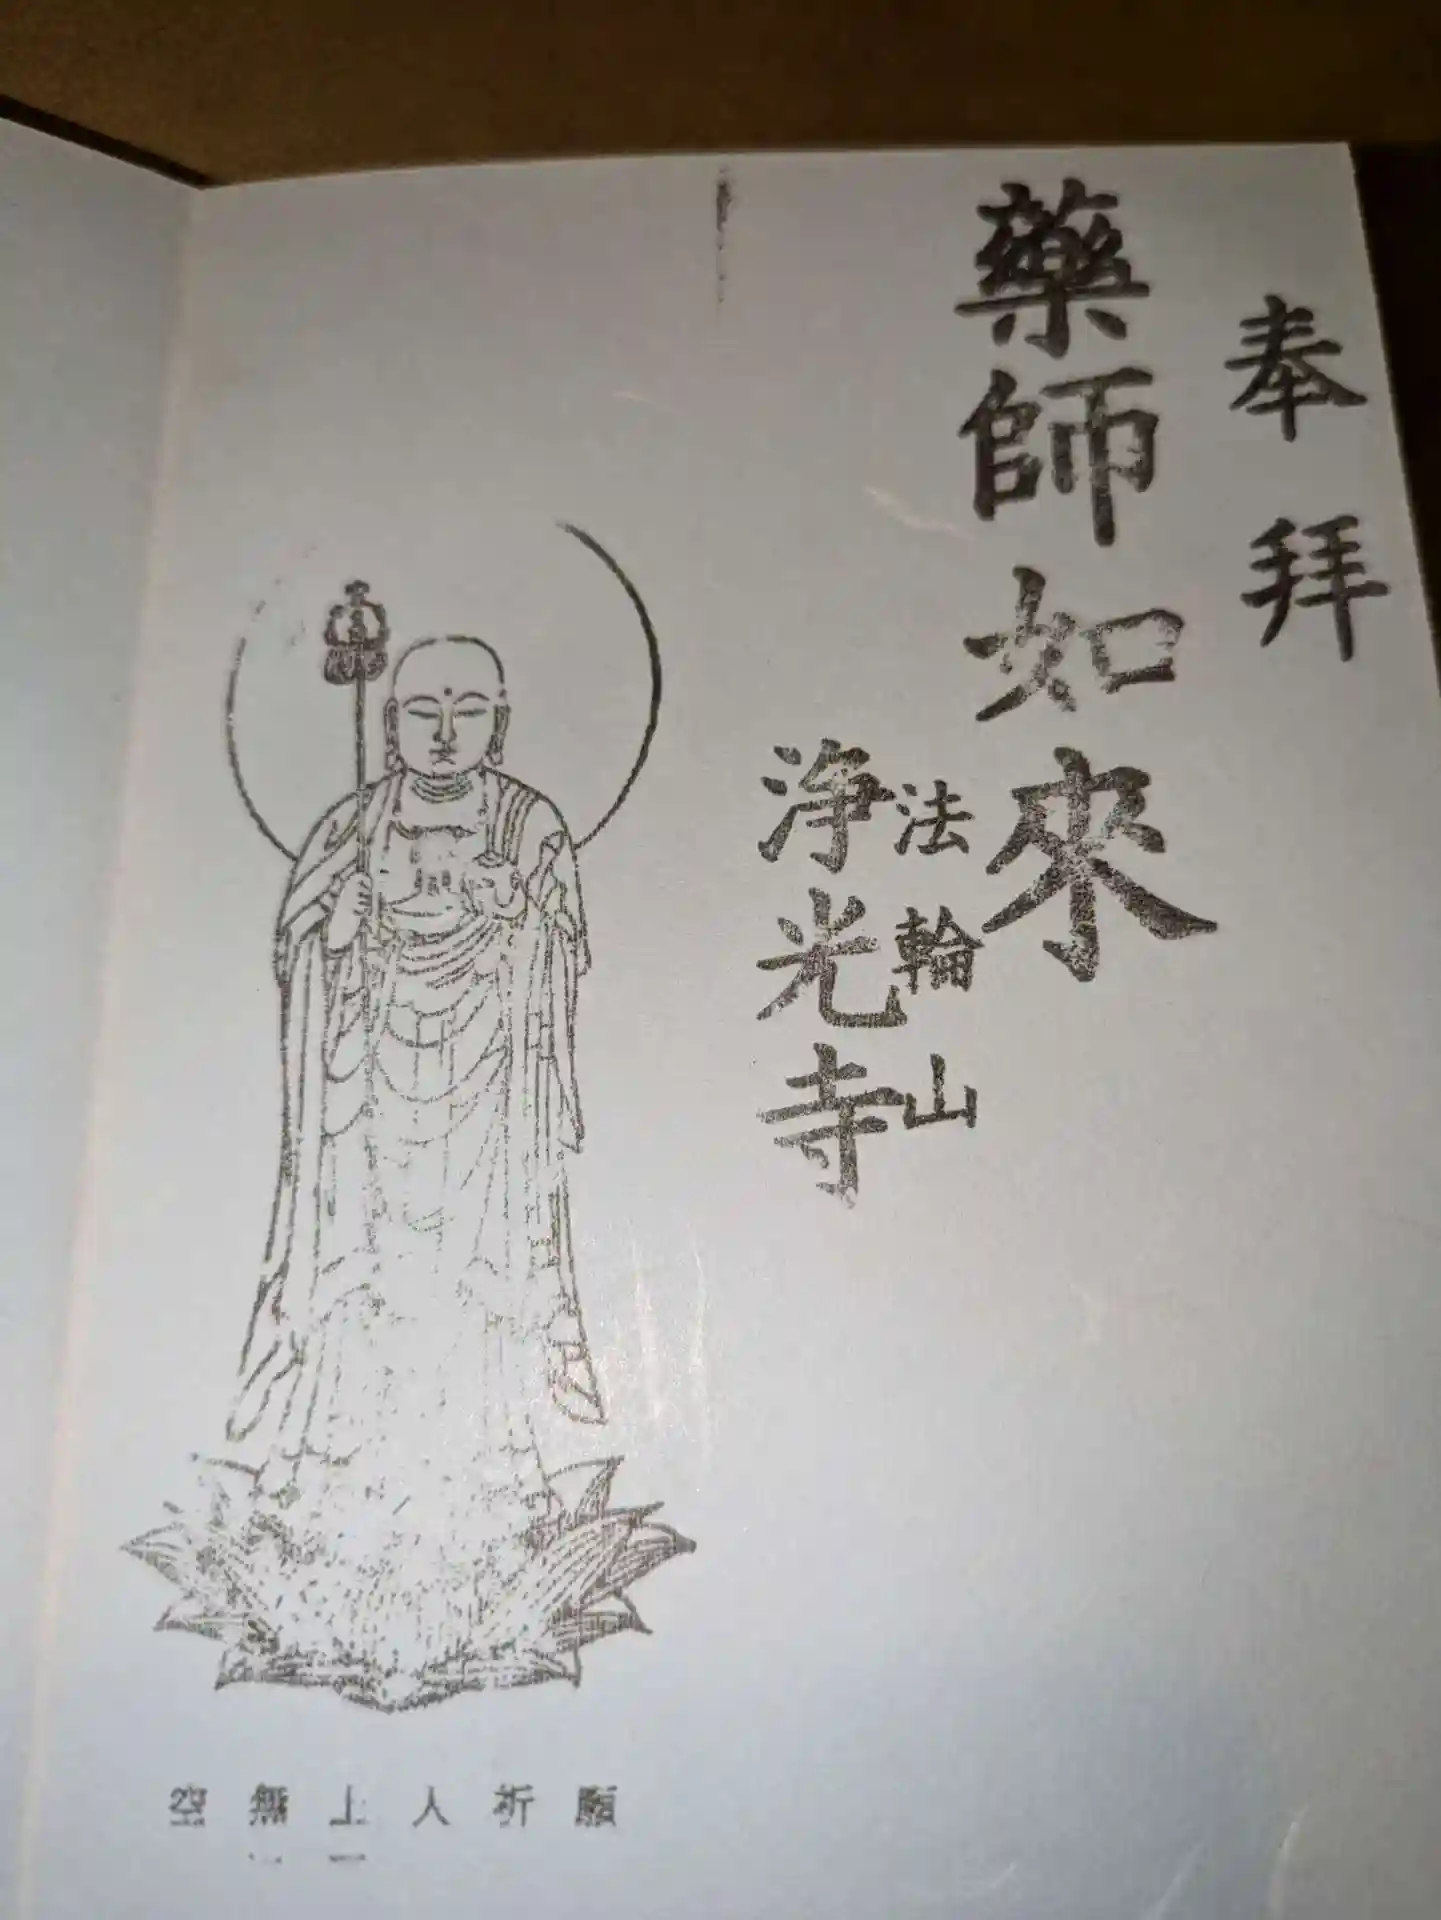 奉拜
藥師如來
法輪山
浄光寺
空無上人祈願